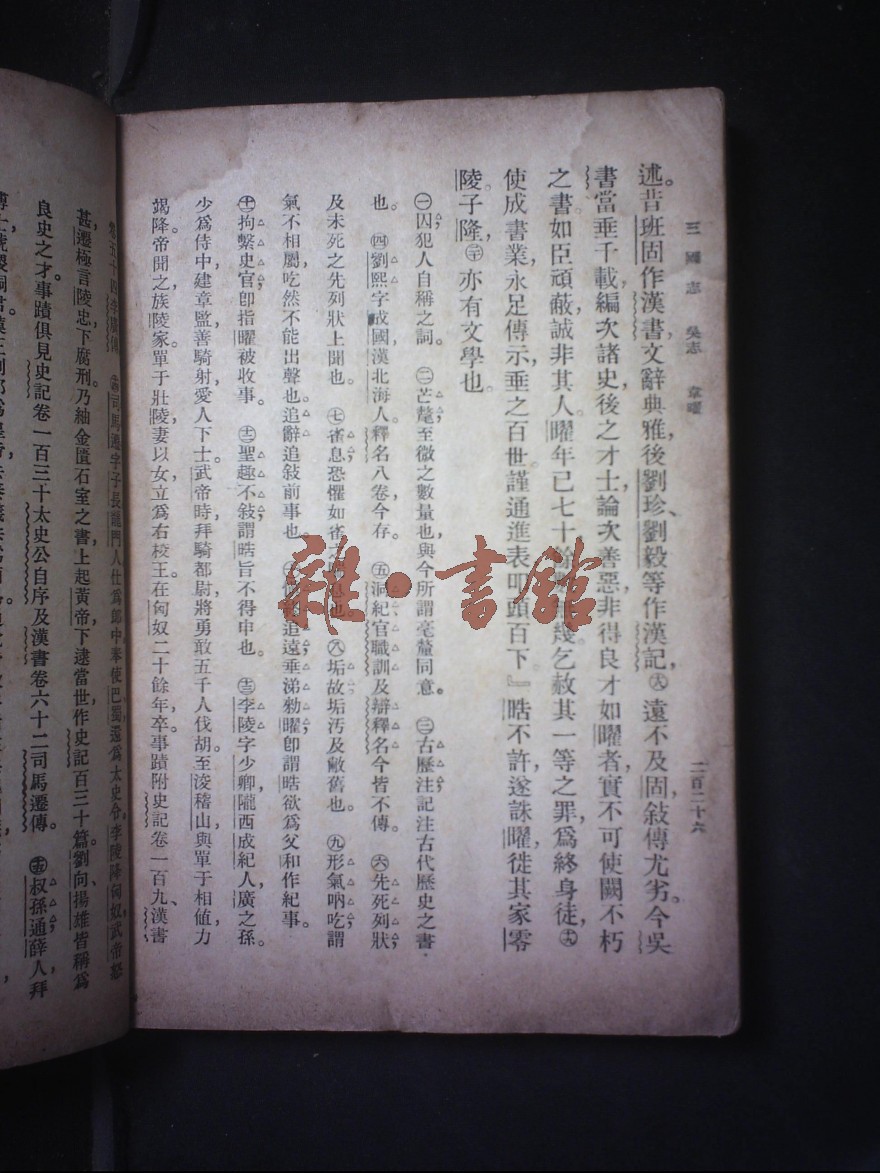 三國志 吳志 韋曜 二百二十六
述。昔班固作漢書，文辭典雅，後劉珍、劉毅等作漢記，㊅遠不及固，敍傳尤劣。今吳
書當垂千載，編次諸史，後之才士論次善惡，非得良才如曜者，實不可使闕不朽
之書。如臣頑蔽，誠非其人。曜年已七十，餘幾，乞赦其一等之罪，爲終身徒，㊈
使成書業，永足傳示，垂之百世。謹通進表，叩頭百下。』晧不許，遂誅曜，徙其家零
陵。子隆，㊁亦有文學也。
㊀囚犯人自稱之詞。 ㊁芒氂，至微之數量也，與今所謂毫釐同意。 ㊂古歷注，記注古代歷史之書
也。 ㊃劉熙字成國，漢北海人，釋名八卷今存。 ㊄洞紀官職訓及辯釋名今皆不傳。 ㊅先死列狀，
及未死之先列狀上聞也。 ㊆雀息，恐懼如雀之也。 ㊇垢故，垢汚及敝舊也。 ㊈形氣吶吃，謂
氣不相屬，吃然不能出聲也。追辭，追敍前事也。 追遠垂涕，勑曜，卽謂晧欲爲父和作紀事。
拘繫史官，卽指曜被收事。 聖趣不敍，謂晧旨不得申也。 李陵字少卿，隴西成紀人，廣之孫。
少爲侍中建章監，善騎射，愛人下士。武帝時拜騎都尉，將勇敢五千人伐胡，至浚稽山，與單于相値，力
竭降。帝聞之，族陵家。單于壯陵，妻以女，立爲右校王。在匈奴二十餘年卒。事蹟附史記卷一百九、漢書
卷五十四李廣傳。 司馬遷字子長，龍門人，仕爲郎中，奉使巴蜀，還爲太史令。李陵降匈奴，武帝怒
甚，遷極言陵忠，下腐刑。乃紬金匱石室之書，上起黃帝，下逮當世，作史記百三十篇。劉向、揚雄皆稱爲
良史之才。事蹟俱見史記卷一百三十太史公自序及漢書卷六十二司馬遷傳。 叔孫通，薛人，拜
雜·書館